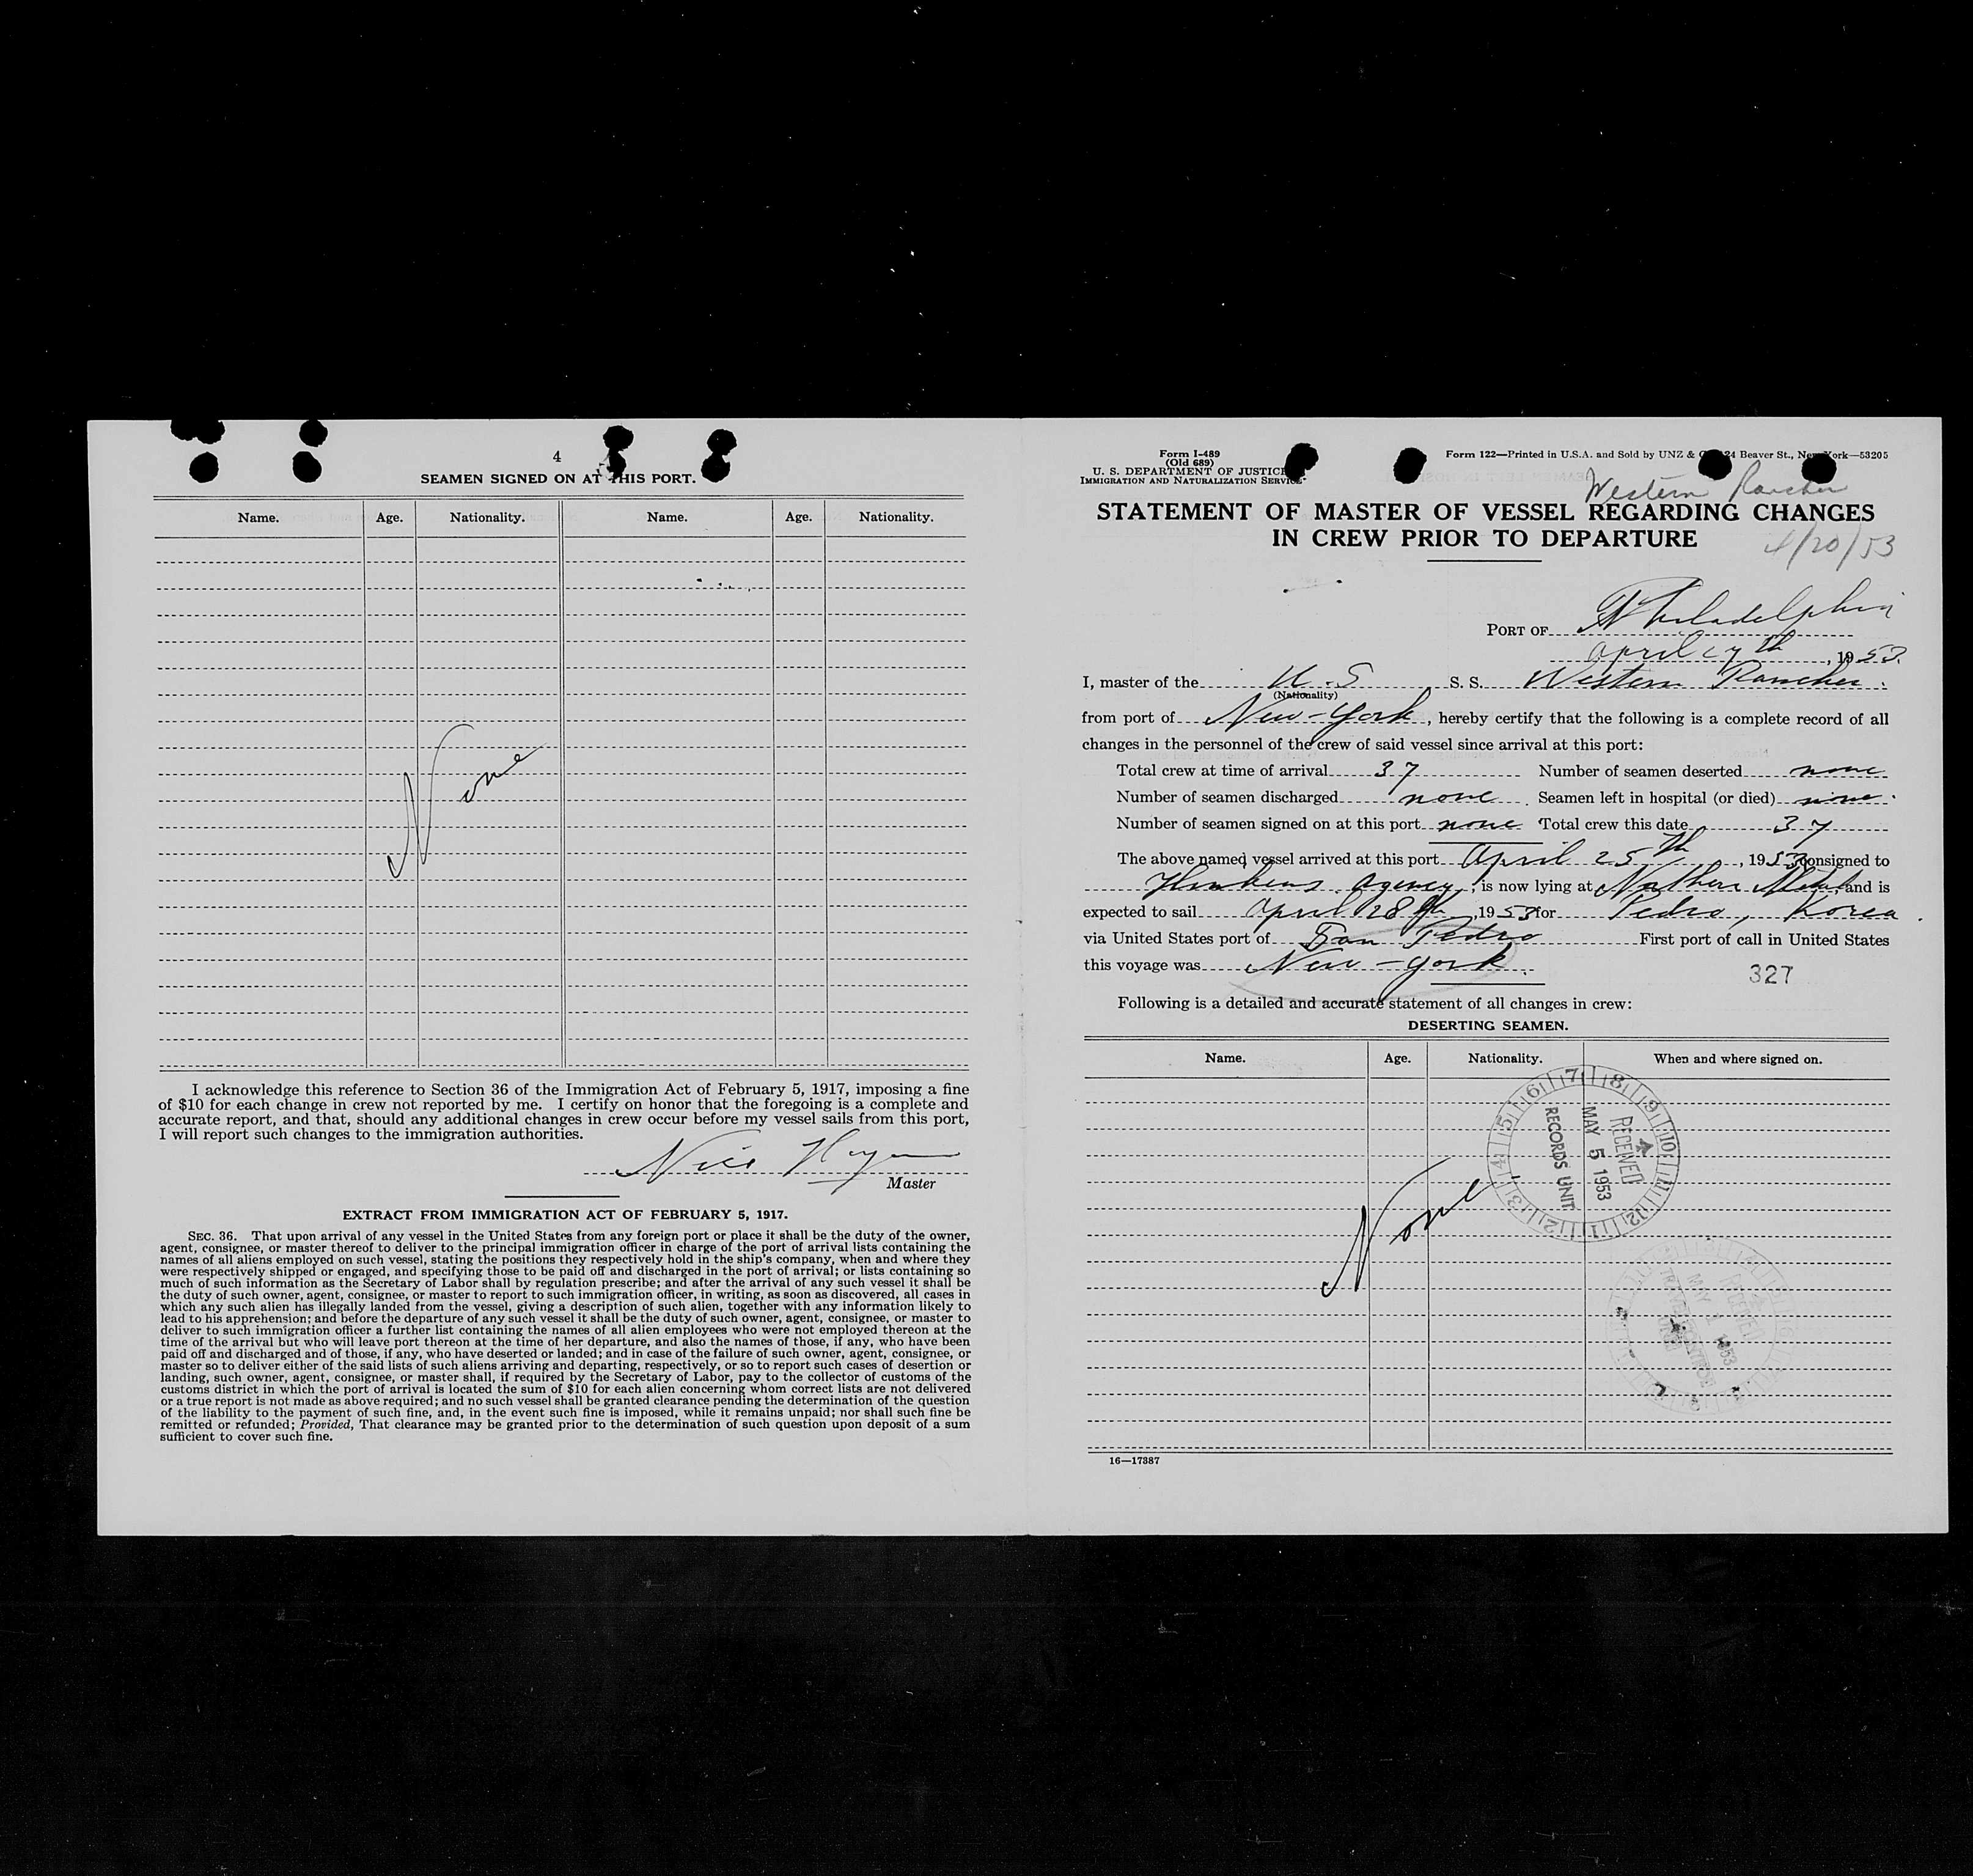 4
SEAMEN SIGNED ON AT THIS PORT.
Name. Age. Nationality. Name. Age. Nationality.
None
I acknowledge this reference to Section 36 of the Immigration Act of February 5, 1917, imposing a fine
of $10 for each change in crew not reported by me. I certify on honor that the foregoing is a complete and
accurate report, and that, should any additional changes in crew occur before my vessel sails from this port,
I will report such changes to the immigration authorities.
Master
EXTRACT FROM IMMIGRATION ACT OF FEBRUARY 5, 1917.
SEC. 36. That upon arrival of any vessel in the United States from any foreign port or place it shall be the duty of the owner,
agent, consignee, or master thereof to deliver to the principal immigration officer in charge of the port of arrival lists containing the
names of all aliens employed on such vessel, stating the positions they respectively hold in the ship's company, when and where they
were respectively shipped or engaged, and specifying those to be paid off and discharged in the port of arrival; or lists containing so
much of such information as the Secretary of Labor shall by regulation prescribe; and after the arrival of any such vessel it shall be
the duty of such owner, agent, consignee, or master to report to such immigration officer, in writing, as soon as discovered, all cases in
which any such alien has illegally landed from the vessel, giving a description of such alien, together with any information likely to
lead to his apprehension; and before the departure of any such vessel it shall be the duty of such owner, agent, consignee, or master to
deliver to such immigration officer a further list containing the names of all alien employees who were not employed thereon at the
time of the arrival but who will leave port thereon at the time of her departure, and also the names of those, if any, who have been
paid off and discharged and of those, if any, who have deserted or landed; and in case of the failure of such owner, agent, consignee, or
master so to deliver either of the said lists of such aliens arriving and departing, respectively, or so to report such cases of desertion or
landing, such owner, agent, consignee, or master shall, if required by the Secretary of Labor, pay to the collector of customs of the
customs district in which the port of arrival is located the sum of $10 for each alien concerning whom correct lists are not delivered
or a true report is not made as above required; and no such vessel shall be granted clearance pending the determination of the question
of the liability to the payment of such fine, and, in the event such fine is imposed, while it remains unpaid; nor shall such fine be
remitted or refunded; Provided, That clearance may be granted prior to the determination of such question upon deposit of a sum
sufficient to cover such fine.
Form I-489
(Old 689)
U. S. DEPARTMENT OF JUSTICE
IMMIGRATION AND NATURALIZATION SERVICE
Form 122—Printed in U.S.A. and Sold by UNZ & 24 Beaver St., New York—53205
Western Rancher
STATEMENT OF MASTER OF VESSEL REGARDING CHANGES
IN CREW PRIOR TO DEPARTURE
4/20/53
PORT OF Philadelphia
April 27th, 1953.
I, master of the U.S S. S. Western Rancher.
(Nationality)
from port of New-York, hereby certify that the following is a complete record of all
changes in the personnel of the crew of said vessel since arrival at this port:
Total crew at time of arrival 37 Number of seamen deserted none
Number of seamen discharged none. Seamen left in hospital (or died) none.
Number of seamen signed on at this port none Total crew this date 37
The above named vessel arrived at this port April 25th, 1953 consigned to
Agency, is now lying at and is
expected to sail April 28th, 1953 for Pedro, Korea.
via United States port of San Pedro First port of call in United States
this voyage was New-York.
327
Following is a detailed and accurate statement of all changes in crew:
DESERTING SEAMEN.
Name. Age. Nationality. When and where signed on.
RECEIVED
MAY 5 1953
RECORDS UNIT
None
16—17387